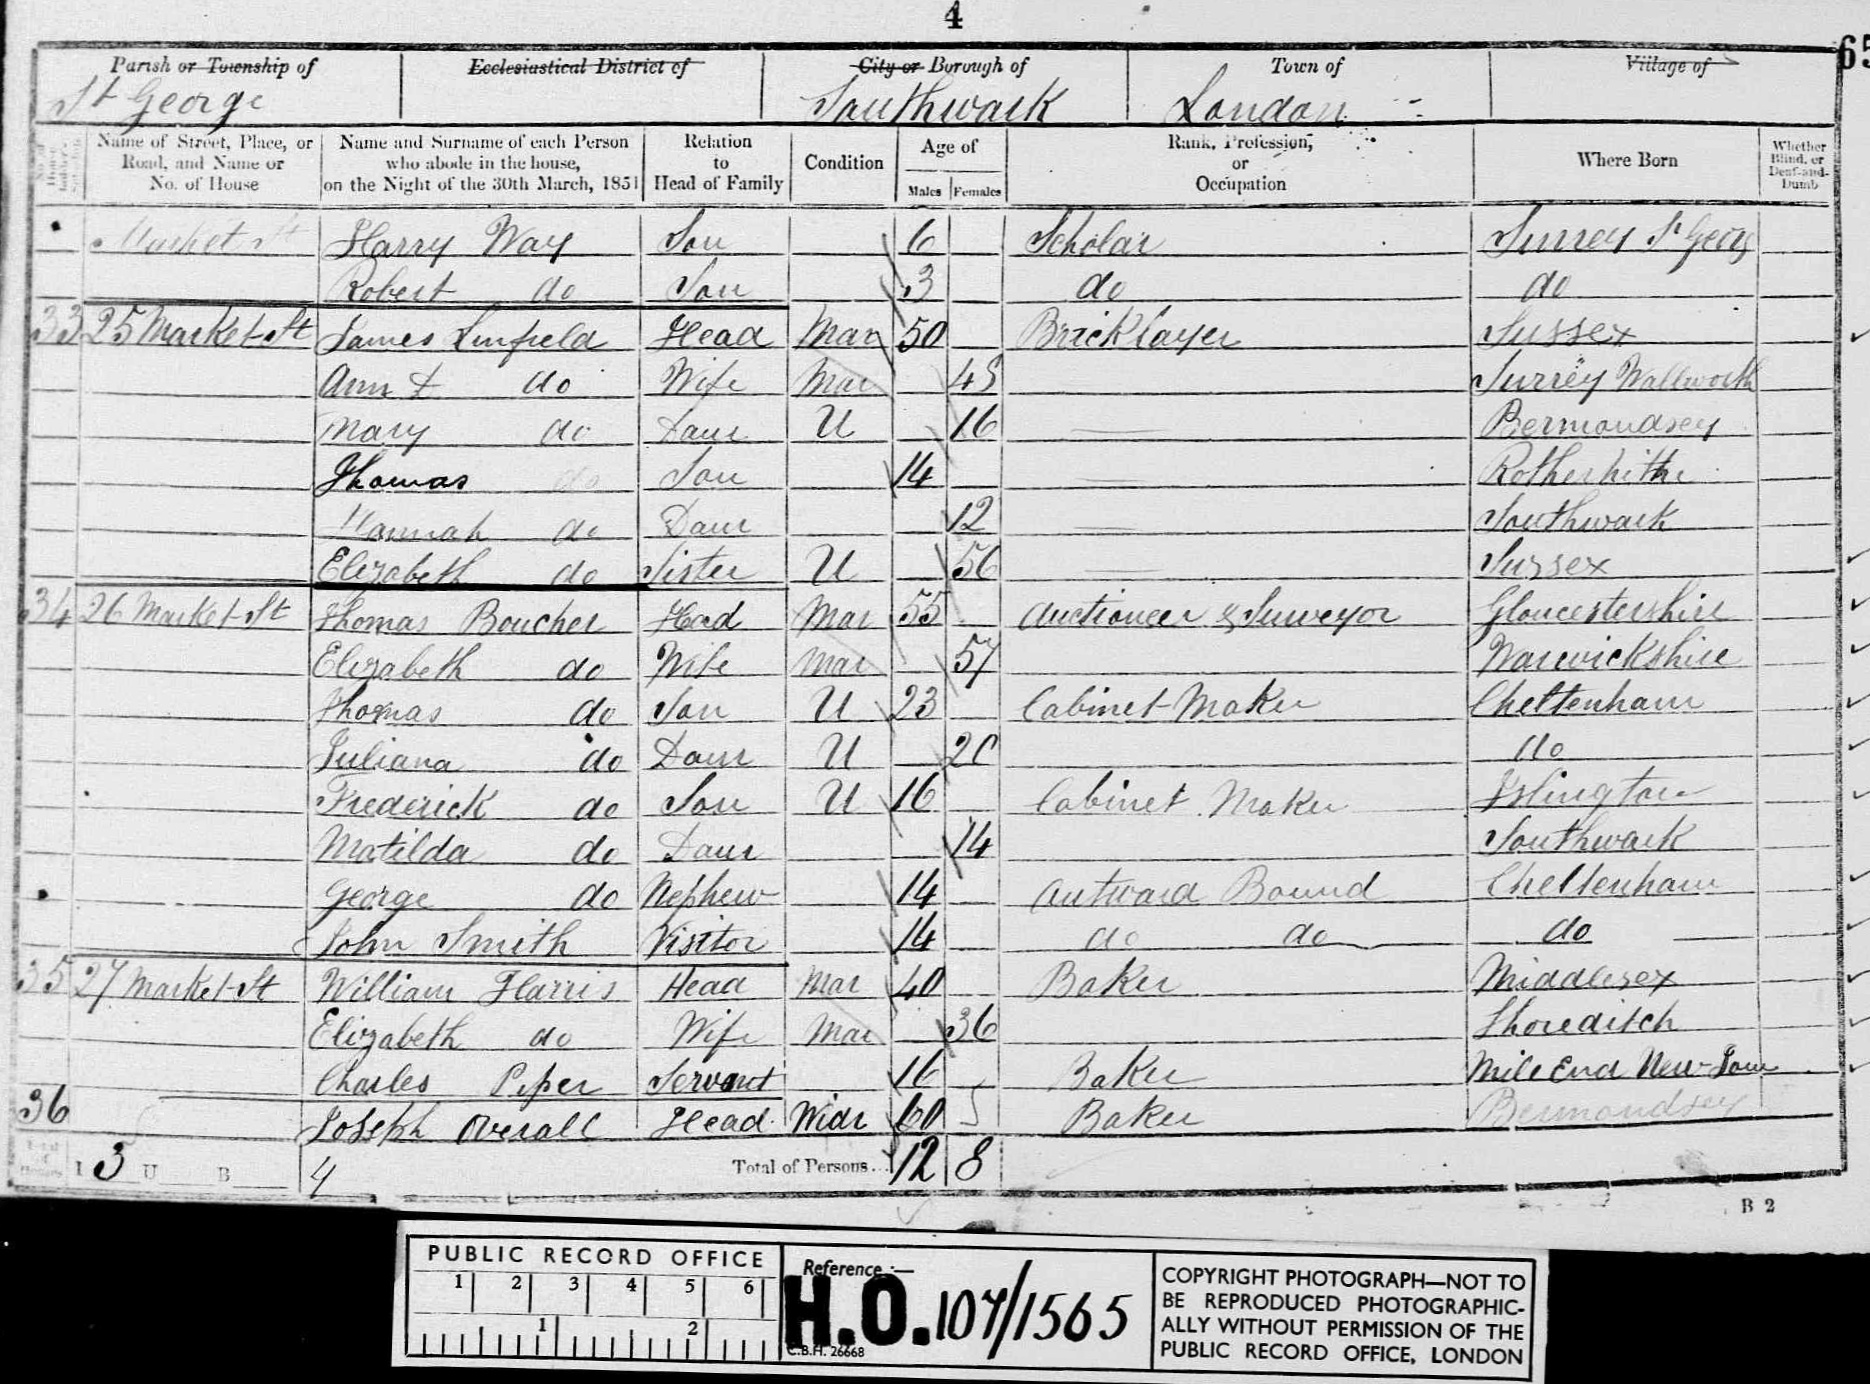 4
65
Parish or Township of Ecclesiastical District of City or Borough of Town of Village of
St George Southwark London
Name of Street, Place, or Road, and Name or No. of House
Name and Surname of each Person who abode in the house, on the Night of the 30th March, 1851
Relation to Head of Family
Condition
Age of
Males Females
Rank, Profession, or Occupation
Where Born
Whether Blind, or Deaf-and-Dumb
Market St Harry Way Son 6 Scholar Surrey St Georg
Robert do Son 3 do do
33 25 Market St James Linfield Head Mar 50 Bricklayer Sussex
Ann do Wife Mar Surrey Wallworth
Mary do Daur U 16 Bermondsey
Thomas do Son 14 Rotherhithe
Hannah do Daur 12 Southwark
Elizabeth do Sister U 56 Sussex
34 26 Market St Thomas Boucher Head Mar 55 Auctioneer & Surveyor Gloucestershire
Elizabeth do Wife Mar 57 Warwickshire
Thomas do Son U 23 Cabinet Maker Cheltenham
Juliana do Daur U 20 do
Frederick do Son U 16 Cabinet Maker Islington
Matilda do Daur 14 Southwark
George do Nephew 14 Outward Bound Cheltenham
John Smith Visitor 14 do do do
35 27 Market St William Harris Head Mar 40 Baker Middlesex
Elizabeth do Wife Mar 36 Shoreditch
Charles Piper Servant 16 Baker Mile End New Town
36 Joseph Overall Head Widr 60 Baker Bermondsey
I 3 U B 4 Total of Persons... 12 8
B 2
PUBLIC RECORD OFFICE
1 2 3 4 5 6
1 2
Reference :—
H.O. 107/1565
C.B.H. 26668
COPYRIGHT PHOTOGRAPH—NOT TO
BE REPRODUCED PHOTOGRAPHIC-
ALLY WITHOUT PERMISSION OF THE
PUBLIC RECORD OFFICE, LONDON